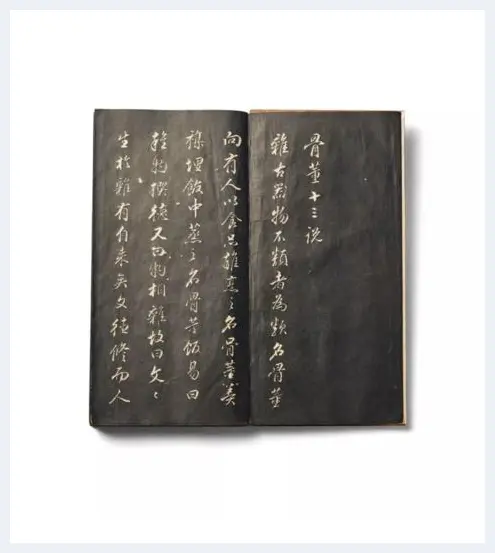 骨董十三说
雜古器物不類者為類名骨董
向有人以食品雜烹之名骨董羹
雜埋飯中蒸之名骨董飯易曰
雜物撰德又曰物相雜故曰文〻
生於雜有自来矣文德修而人